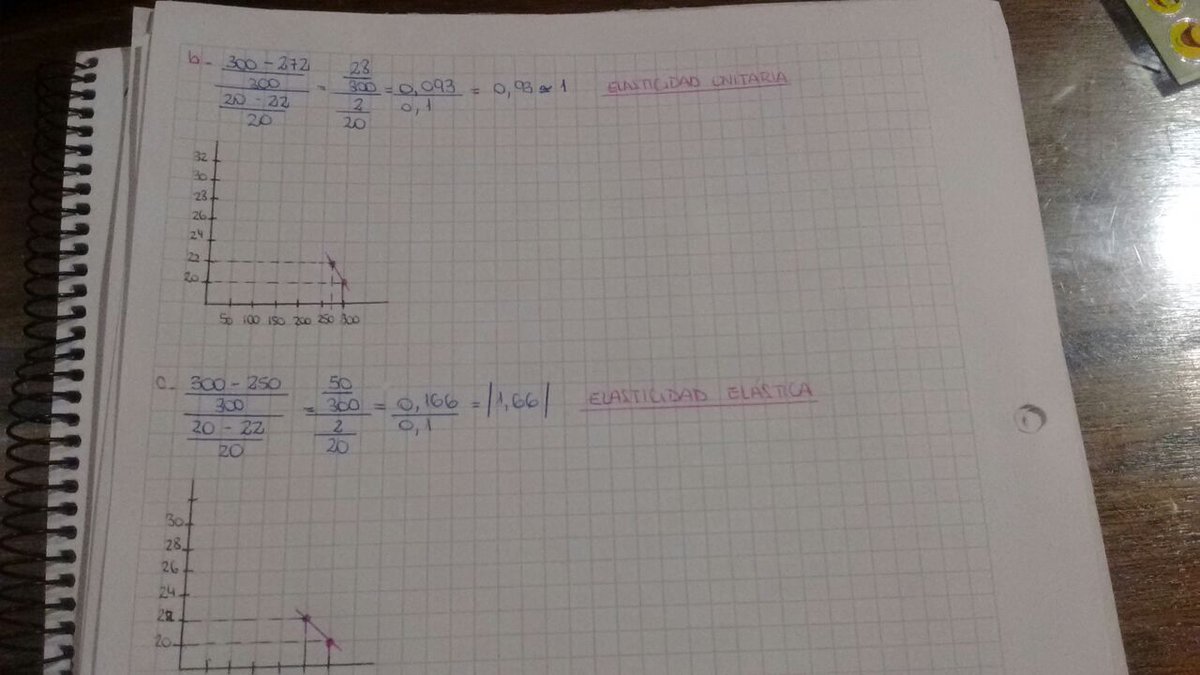 b- 300 - 272 / 300 / 20 - 22 / 20 = 28 / 300 / 2 / 20 = 0,093 / 0,1 = 0,93 ≈ 1 ELASTICIDAD UNITARIA
32
30
28
26
24
22
20
50 100 150 200 250 300
c- 300 - 250 / 300 / 20 - 22 / 20 = 50 / 300 / 2 / 20 = 0,166 / 0,1 = |1,66| ELASTICIDAD ELÁSTICA
30
28
26
24
22
20